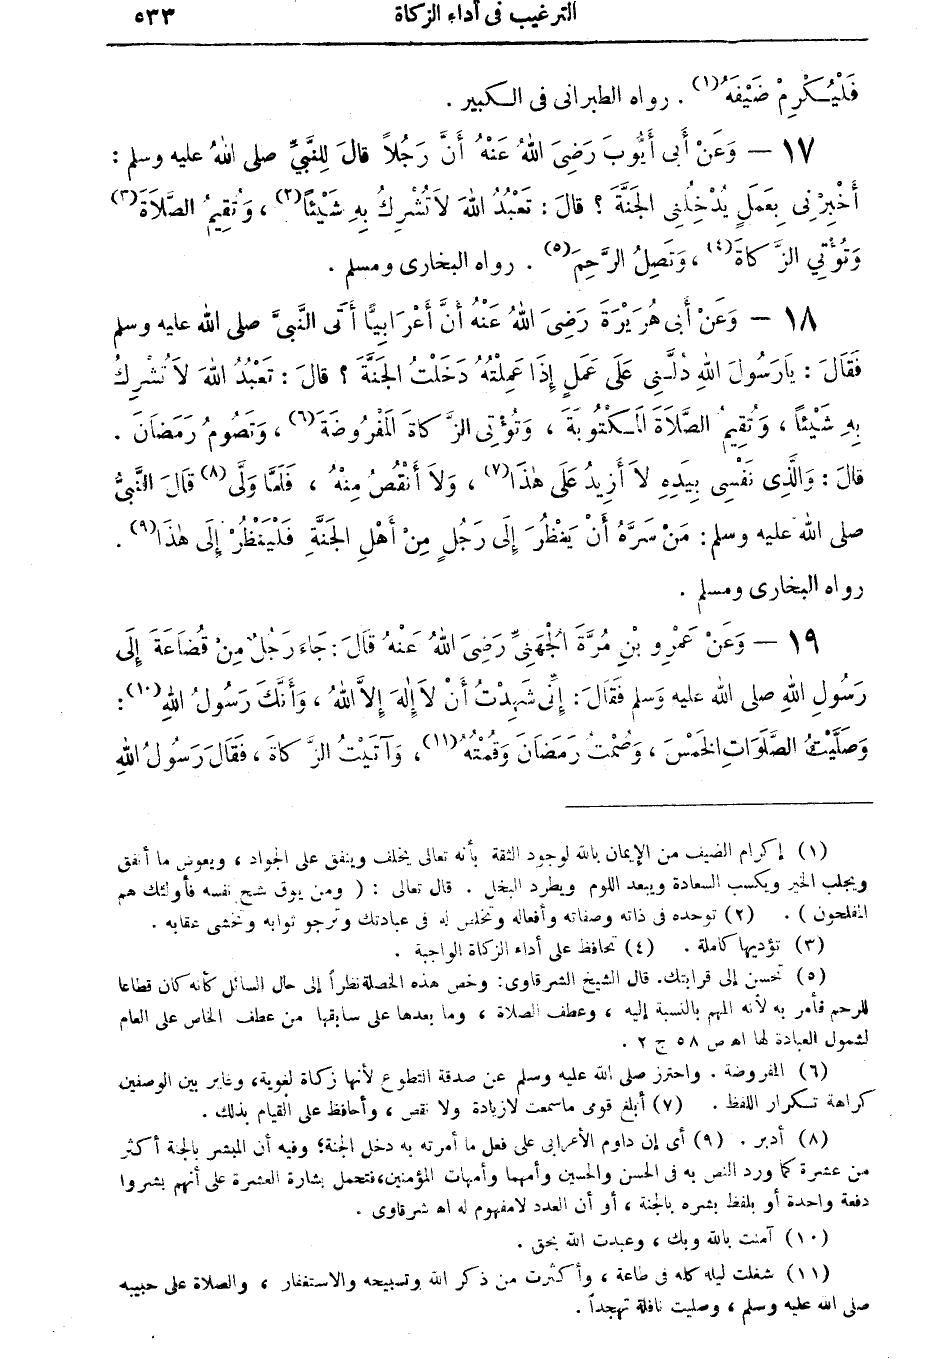 الترغيب فى أداء الزكاة ٥٣٣
فَلْيُكْرِمْ ضَيْفَهُ(١) . رواه الطبرانى فى الكبير .
١٧ — وَعَنْ أَبى أَيُّوبَ رَضِىَ اللهُ عَنْهُ أَنَّ رَجُلاً قالَ لِلنَّبِيِّ صلى اللهُ عليه وسلم :
أَخْبِرْنِى بِعَمَلٍ يُدْخِلُنِى الجَنَّةَ ؟ قالَ : تَعْبُدُ اللهَ لاَ تُشْرِكُ بِهِ شَيْئاً(٢) ، وَتُقِيمُ الصَّلاَةَ(٣)
وَتُؤْتِي الزَّكاةَ(٤) ، وَتَصِلُ الرَّحِمَ(٥) . رواه البخارى ومسلم .
١٨ — وَعَنْ أَبى هُرَيْرَةَ رَضِىَ اللهُ عَنْهُ أَنَّ أَعْرَابِيًّا أَتَى النَّبىَّ صلى الله عليه وسلم
فَقَالَ : يَارَسُولَ اللهِ دُلَّنِى عَلَى عَمَلٍ إِذَا عَمِلْتُهُ دَخَلْتُ الجَنَّةَ ؟ قالَ : تَعْبُدُ اللهَ لاَ تُشْرِكُ
بِهِ شَيْئاً ، وَتُقِيمُ الصَّلاَةَ المَكْتُوبَةَ ، وَتُؤْتِى الزَّكاةَ المَفْرُوضَةَ(٦) ، وَتَصُومُ رَمَضَانَ .
قالَ : وَالَّذِى نَفْسِى بِيَدِهِ لاَ أَزِيدُ عَلَى هٰذَا(٧) ، وَلاَ أَنْقُصُ مِنْهُ ، فَلَمَّا وَلَّى(٨) قَالَ النَّبىُّ
صلى الله عليه وسلم : مَنْ سَرَّهُ أَنْ يَنْظُرَ إِلَى رَجُلٍ مِنْ أَهْلِ الجَنَّةِ فَلْيَنْظُرْ إِلَى هٰذَا(٩) .
رواه البخارى ومسلم .
١٩ — وَعَنْ عَمْرِو بْنِ مُرَّةَ الْجُهَنِيِّ رَضِىَ اللهُ عَنْهُ قَالَ : جَاءَ رَجُلٌ مِنْ قُضَاعَةَ إِلَى
رَسُولِ اللهِ صلى الله عليه وسلم فَقَالَ : إِنِّى شَهِدْتُ أَنْ لاَ إِلٰهَ إِلاَّ اللهُ ، وَأَنَّكَ رَسُولُ اللهِ(١٠) :
وَصَلَّيْتُ الصَّلَوَاتِ الخَمْسَ ، وَصُمْتُ رَمَضَانَ وَقُمْتُهُ(١١) ، وَآتَيْتُ الزَّكاةَ ، فَقَالَ رَسُولُ اللهِ
(١) إكرام الضيف من الإيمان بالله لوجود الثقة بأنه تعالى يخلف وينفق على الجواد ، ويعوض ما أنفق
ويجلب الخير ويكسب السعادة ويبعد اللوم ويطرد البخل . قال تعالى : ( ومن يوق شح نفسه فأولئك هم
المفلحون ) . (٢) توحده فى ذاته وصفاته وأفعاله وتخلص له فى عبادتك وترجو ثوابه وتخشى عقابه .
(٣) تؤديها كاملة . (٤) تحافظ على أداء الزكاة الواجبة .
(٥) تحسن إلى قرابتك. قال الشيخ الشرقاوى: وخص هذه الخصلة نظراً إلى حال السائل كأنه كان قطاعا
للرحم فأمر به لأنه المهم بالنسبة إليه ، وعطف الصلاة ، وما بعدها على سابقها من عطف الخاص على العام
لشمول العبادة لها اه ص ٥٨ ج ٢ .
(٦) المفروضة . واحترز صلى الله عليه وسلم عن صدقة التطوع لأنها زكاة لغوية، وغاير بين الوصفين
كراهة تكرار اللفظ . (٧) أبلغ قومى ماسمعت لازيادة ولا نقص ، وأحافظ على القيام بذلك .
(٨) أدبر . (٩) أى إن داوم الأعرابى على فعل ما أمرته به دخل الجنة؛ وفيه أن المبشر بالجنة أكثر
من عشرة كما ورد النص به فى الحسن والحسين وأمهما وأمهات المؤمنين،فتحمل بشارة العشرة على أنهم بشروا
دفعة واحدة أو بلفظ بشره بالجنة ، أو أن العدد لامفهوم له اه شرقاوى .
(١٠) آمنت بالله وبك ، وعبدت الله بحق .
(١١) شغلت ليله كله فى طاعة ، وأكثرت من ذكر الله وتسبيحه والاستغفار ، والصلاة على حبيبه
صلى الله عليه وسلم ، وصليت نافلة تهجداً .